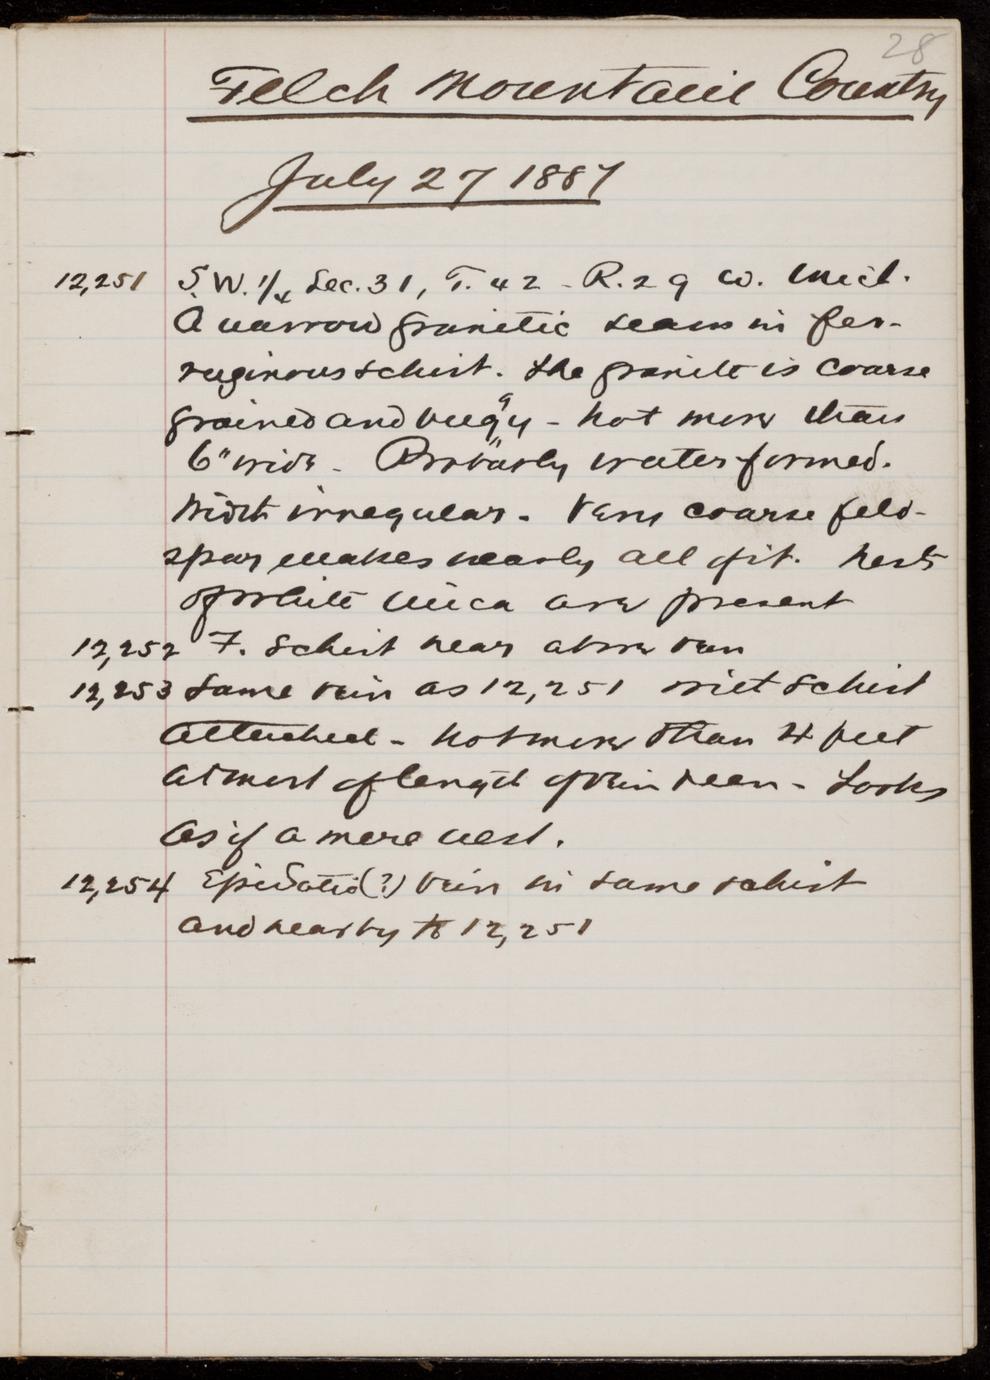 28
Felch Mountain Country
July 27 1887
12,251 S.W. 1/4 Sec. 31, T. 42 - R. 29 W. Mich.
A narrow granitic seam in fer-
ruginous schist. The granite is coarse
grained and vuggy - not more than
6" wide - Probably water formed.
Width irregular. Very coarse feld-
spar makes nearly all of it. Nests
of white mica are present
12,252 F. Schist near above vein
12,253 Same vein as 12,251 with schist
attached - not more than 4 feet
at most of length of vein seen - Looks
as if a mere nest.
12,254 Epidotic (?) vein in same schist
and nearby to 12,251